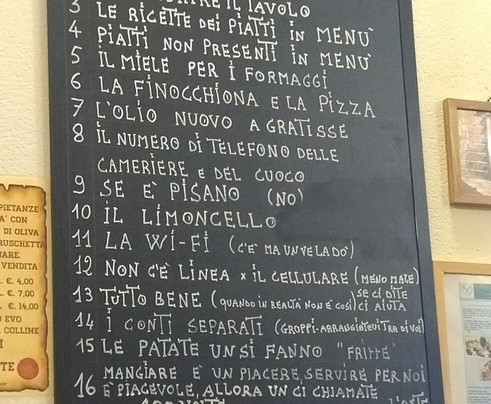 IL TAVOLO
3 LE RICETTE DEI PIATTI IN MENU'
4 PIATTI NON PRESENTI IN MENU'
5 IL MIELE PER I FORMAGGI
6 LA FINOCCHIONA E LA PIZZA
7 L'OLIO NUOVO A GRATISSE
8 IL NUMERO DI TELEFONO DELLE
CAMERIERE E DEL CUOCO
9 SE E' PISANO (NO)
10 IL LIMONCELLO
11 LA WI-FI (C'E' MA UN VE LA DO')
12 NON C'E' LINEA x IL CELLULARE (MENO MALE)
13 TUTTO BENE (QUANDO IN REALTA' NON E' COSI') SE CI DITE CI AIUTA
14 I CONTI SEPARATI (GROPPI-ARRANGIATEVI TRA DI VOI)
15 LE PATATE UN SI FANNO "FRITTE"
MANGIARE E' UN PIACERE, SERVIRE PER NOI
16 E' PIACEVOLE, ALLORA UN CI CHIAMATE
PIETANZE
A' CON
DI OLIVA
BRUSCHETTA
VENDITA
€. 4,00
€. 7,00
€. 14,00
EVO
COLLINE